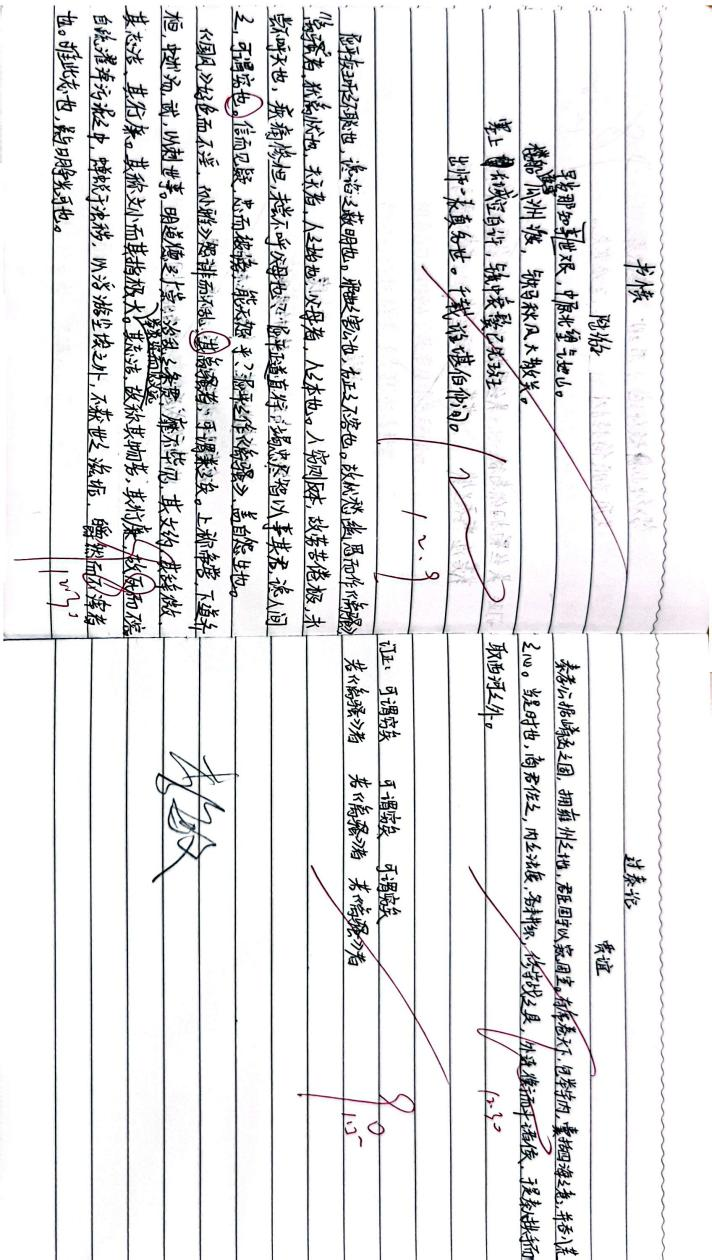 书愤
陆游
早岁那知世事艰，中原北望气如山。
楼船夜雪瓜洲渡，铁马秋风大散关。
塞上长城空自许，镜中衰鬓已先斑
出师一表真名世。千载谁堪伯仲间。
12.9
屈平疾王听之不聪也，谗谄之蔽明也。邪曲之害公也，方正之不容也。故忧愁幽思而作《离骚》
《离骚》者，犹离忧也，夫天者，人之始也。父母者，人之本也。人穷则反本，故劳苦倦极，未
尝不呼天也，疾痛惨怛，未尝不呼父母也。屈平正道直行，竭忠尽智以事其君，谗人间
之，可谓穷也。信而见疑，忠而被谤，能无怨乎？屈平之作《离骚》，盖自怨生也。
《国风》好色而不淫，《小雅》怨诽而不乱，《离骚》者，可谓兼之矣。上称帝喾，下道齐
桓，中述汤、武，以刺世事。明道德之广崇，治乱之条贯，靡不毕见，其文约，其辞微，
其志洁，其行廉。其称文小而其指极大，其志洁，故称其物芳，其行廉，故死而不容
自疏濯淖污泥之中，蝉蜕于浊秽，以浮游尘埃之外，不获世之滋垢，皭然而不滓者
也。推此志也，虽与日月争光可也。
过秦论
贾谊
秦孝公据崤函之固，拥雍州之地，君臣固守以窥周室，有席卷天下，包举宇内，囊括四海之意，并吞八荒
之心。当是时也，商君佐之，内立法度，务耕织，修守战之具，外连衡而斗诸侯，于是秦人拱手而
取西河之外。
12.30
订正：可谓穷矣 可谓穷矣 可谓穷矣
若《离骚》者 若《离骚》者 若《离骚》者